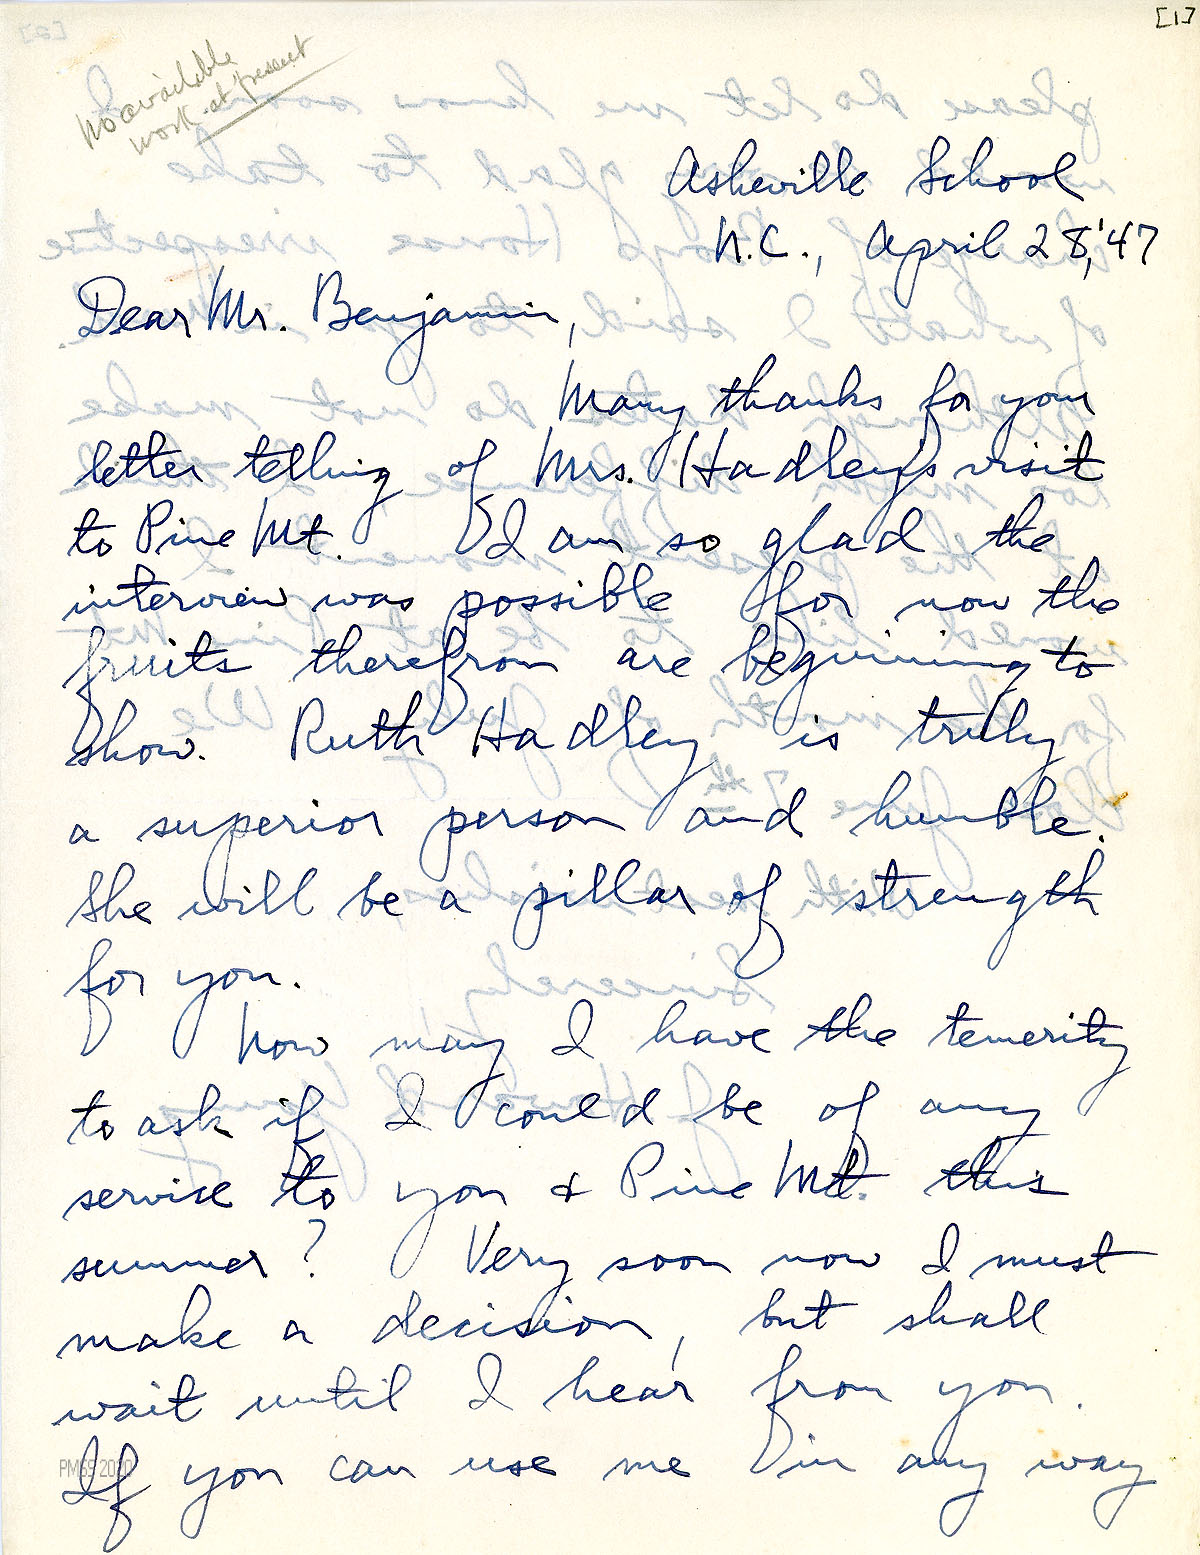 [1]
No available
work at present
Asheville School
N.C., April 28, '47
Dear Mr. Benjamin,
Many thanks for your
letter telling of Mrs. Hadley's visit
to Pine Mt. I am so glad the
interview was possible for now the
fruits therefrom are beginning to
show. Ruth Hadley is truly
a superior person and humble.
She will be a pillar of strength
for you.
Now may I have the temerity
to ask if I could be of any
service to you & Pine Mt. this
summer? Very soon now I must
make a decision, but shall
wait until I hear from you.
If you can use me in any way
PMSS 2020